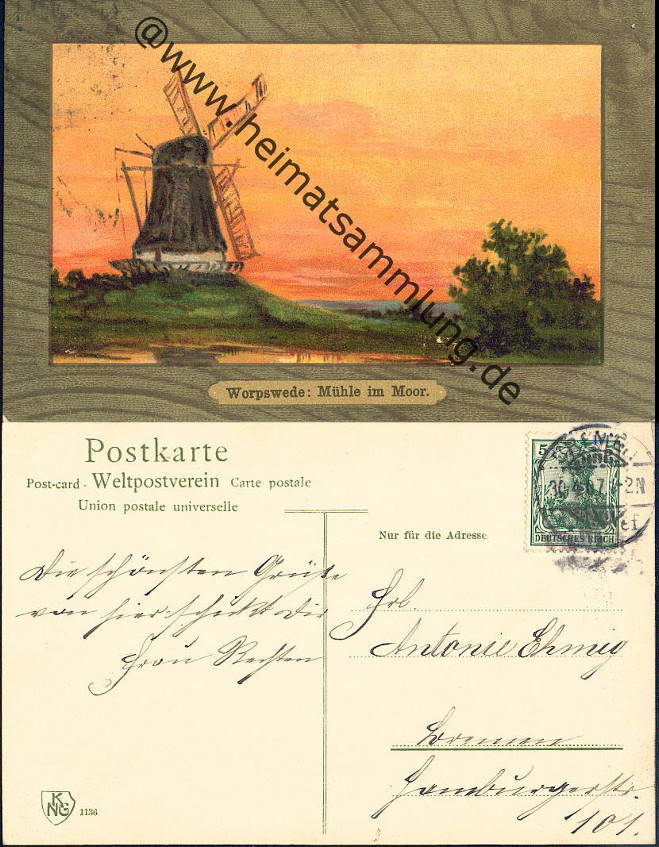 @www.heimatsammlung.de
Worpswede: Mühle im Moor.
Postkarte
Post-card - Weltpostverein Carte postale
Union postale universelle
Nur für die Adresse
5
DEUTSCHES REICH
Die schönsten Grüße
von hier schickt Dir
Frau Rechten
Frl.
Antonie Ehmig
Bremen
Hamburgerstr.
101.
KNG
1136